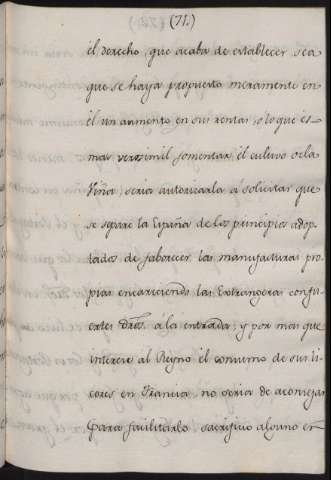 (71.)
el derecho, que acaba de establecer sea
que se haya propuesto meramente en
él un aumento en sus rentas, ó lo que es
mas verosimil fomentar el cultivo de la
Viña, seria autorizarla á solicitar que
se separe la España de los principios adop-
tados de faborecer las manufacturas pro-
pias encareciendo las Extrangeras con fu-
ertes dros. á la entrada; y por mas que
interese al Reyno el consumo de sus li-
cores en Francia, no seria de aconsejar
para facilitarlo sacrificio alguno en